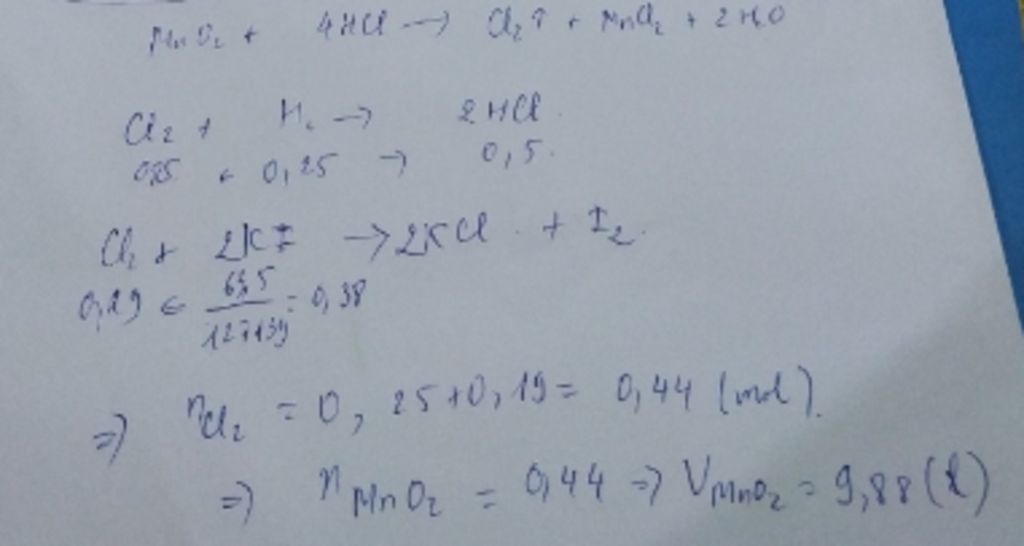 MnO2 + 4HCl → Cl2↑ + MnCl2 + 2H2O
Cl2 + H2 → 2HCl
0,25 ← 0,25 → 0,5
Cl2 + 2KI → 2KCl + I2
0,19 ← 63,5/127+39 = 0,38
⇒ nCl2 = 0,25+0,19 = 0,44 (mol)
⇒ nMnO2 = 0,44 ⇒ VMnO2 = 9,88 (l)